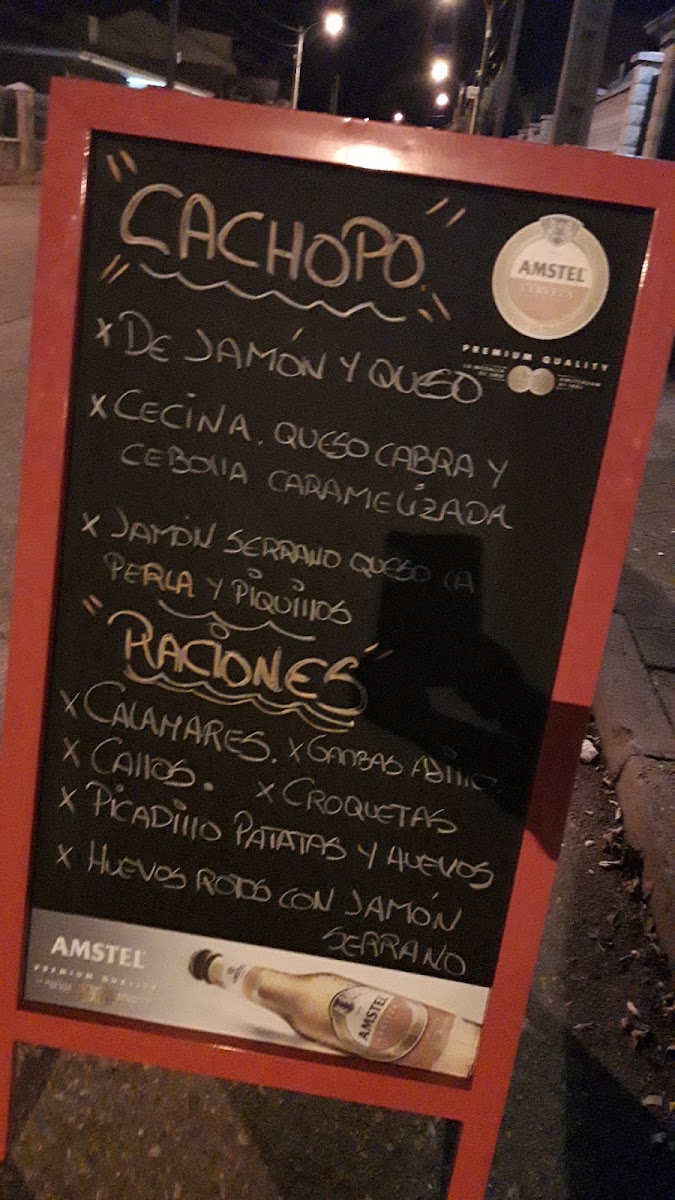 CACHOPO
AMSTEL
CERVEZA
PREMIUM QUALITY
x DE JAMÓN Y QUESO
x CECINA. QUESO CABRA Y
CEBOLLA CARAMELIZADA
x JAMÓN SERRANO QUESO LA
PERLA Y PIQUILLOS
RACIONES
x CALAMARES. x GAMBAS AJILLO.
x CALLOS. x CROQUETAS
x PICADILLO PATATAS Y HUEVOS
x HUEVOS ROTOS CON JAMÓN
SERRANO
AMSTEL
PREMIUM QUALITY
AMSTEL